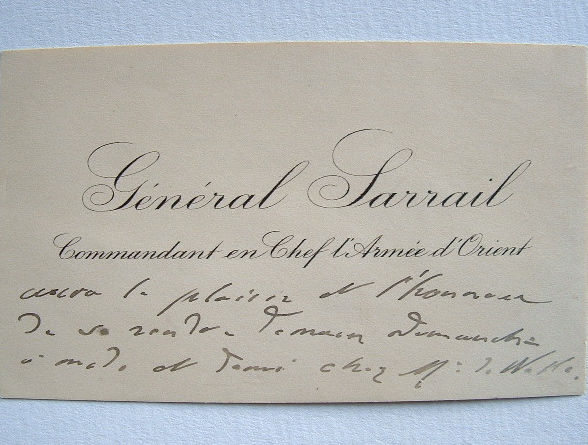 Général Sarrail
Commandant en Chef l'Armée d'Orient
aura le plaisir et l'honneur
de se rendre demain dimanche
à midi et demi chez Mr